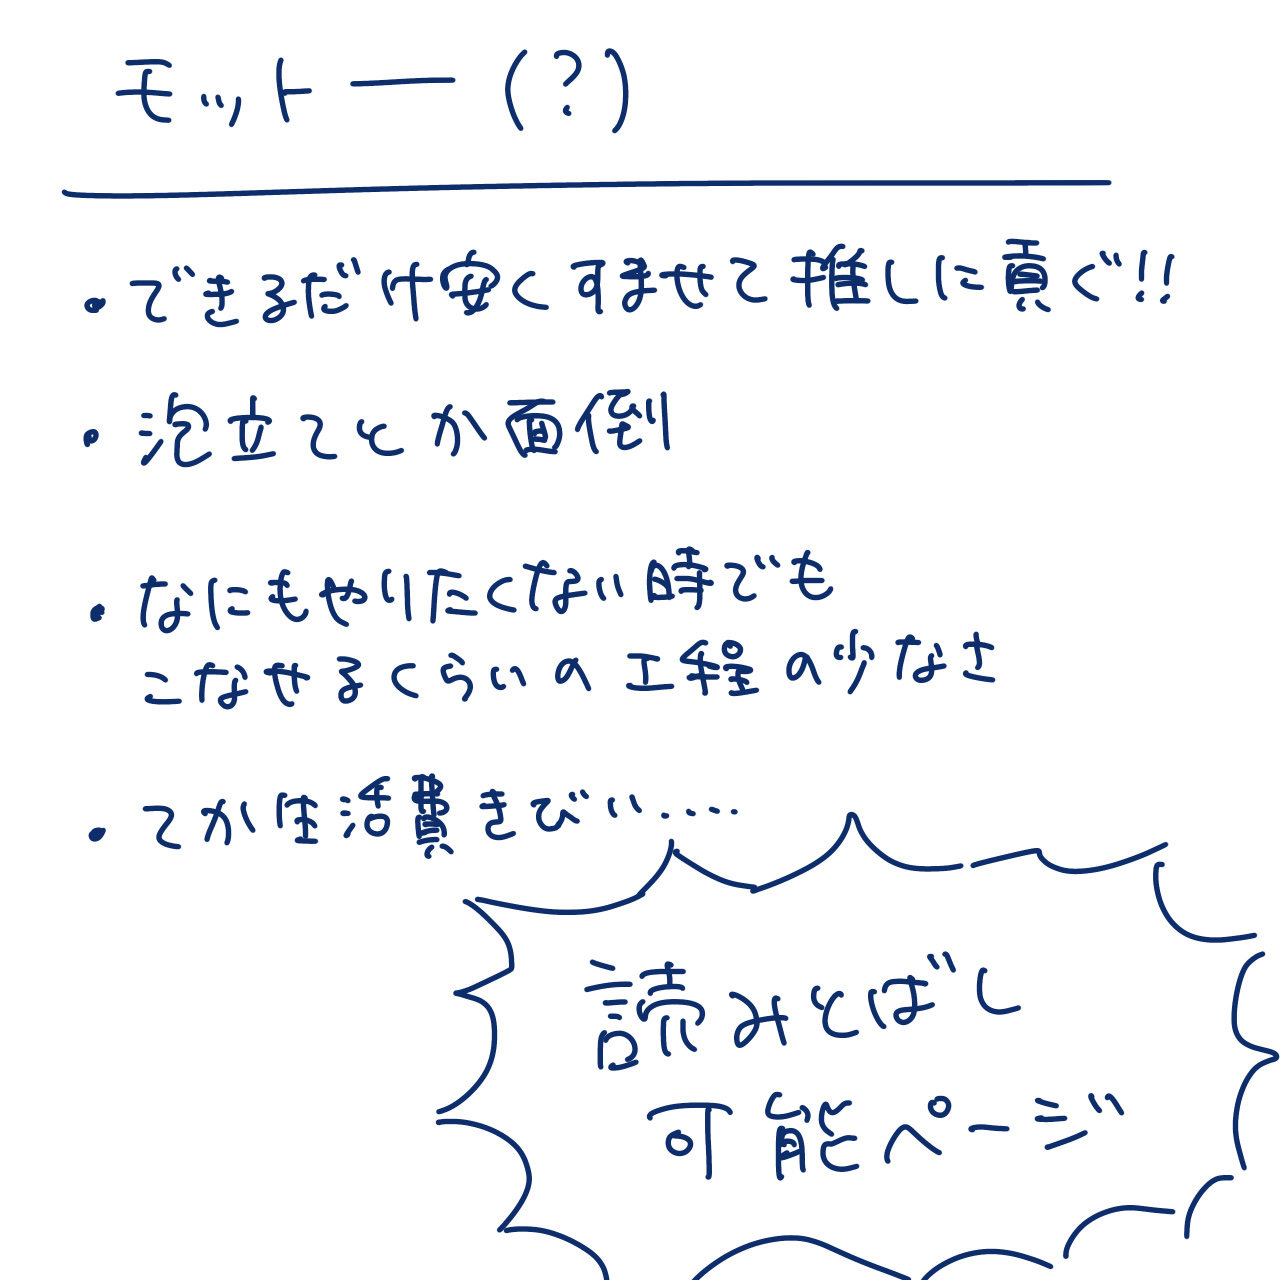 モットー(?)
・できるだけ安くすませて推しに貢ぐ!!
・泡立てとか面倒
・なにもやりたくない時でも
こなせるくらいの工程の少なさ
・てか生活費きびい.....
読みとばし
可能ページ